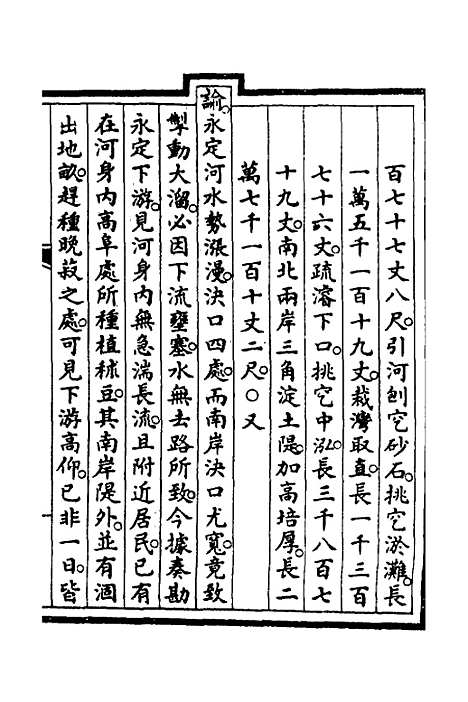 百七十七丈八尺。引河刨穵砂石。挑穵淤灘。長
一萬五千一百十九丈。裁灣取直。長一千三百
七十六丈。疏濬下口。挑穵中泓。長三千八百七
十九丈。南北兩岸三角淀土隄。加高培厚。長二
萬七千一百十丈二尺。○又
諭。永定河水勢漲漫。決口四處。而南岸決口尤寬。竟致
掣動大溜。必因下流壅塞。水無去路所致。今據奏勘
永定下游。見河身內無急湍長流。且附近居民。已有
在河身內高阜處所種植秫豆。其南岸隄外。並有涸
出地畝。趕種晚菽之處。可見下游高仰。已非一日。皆